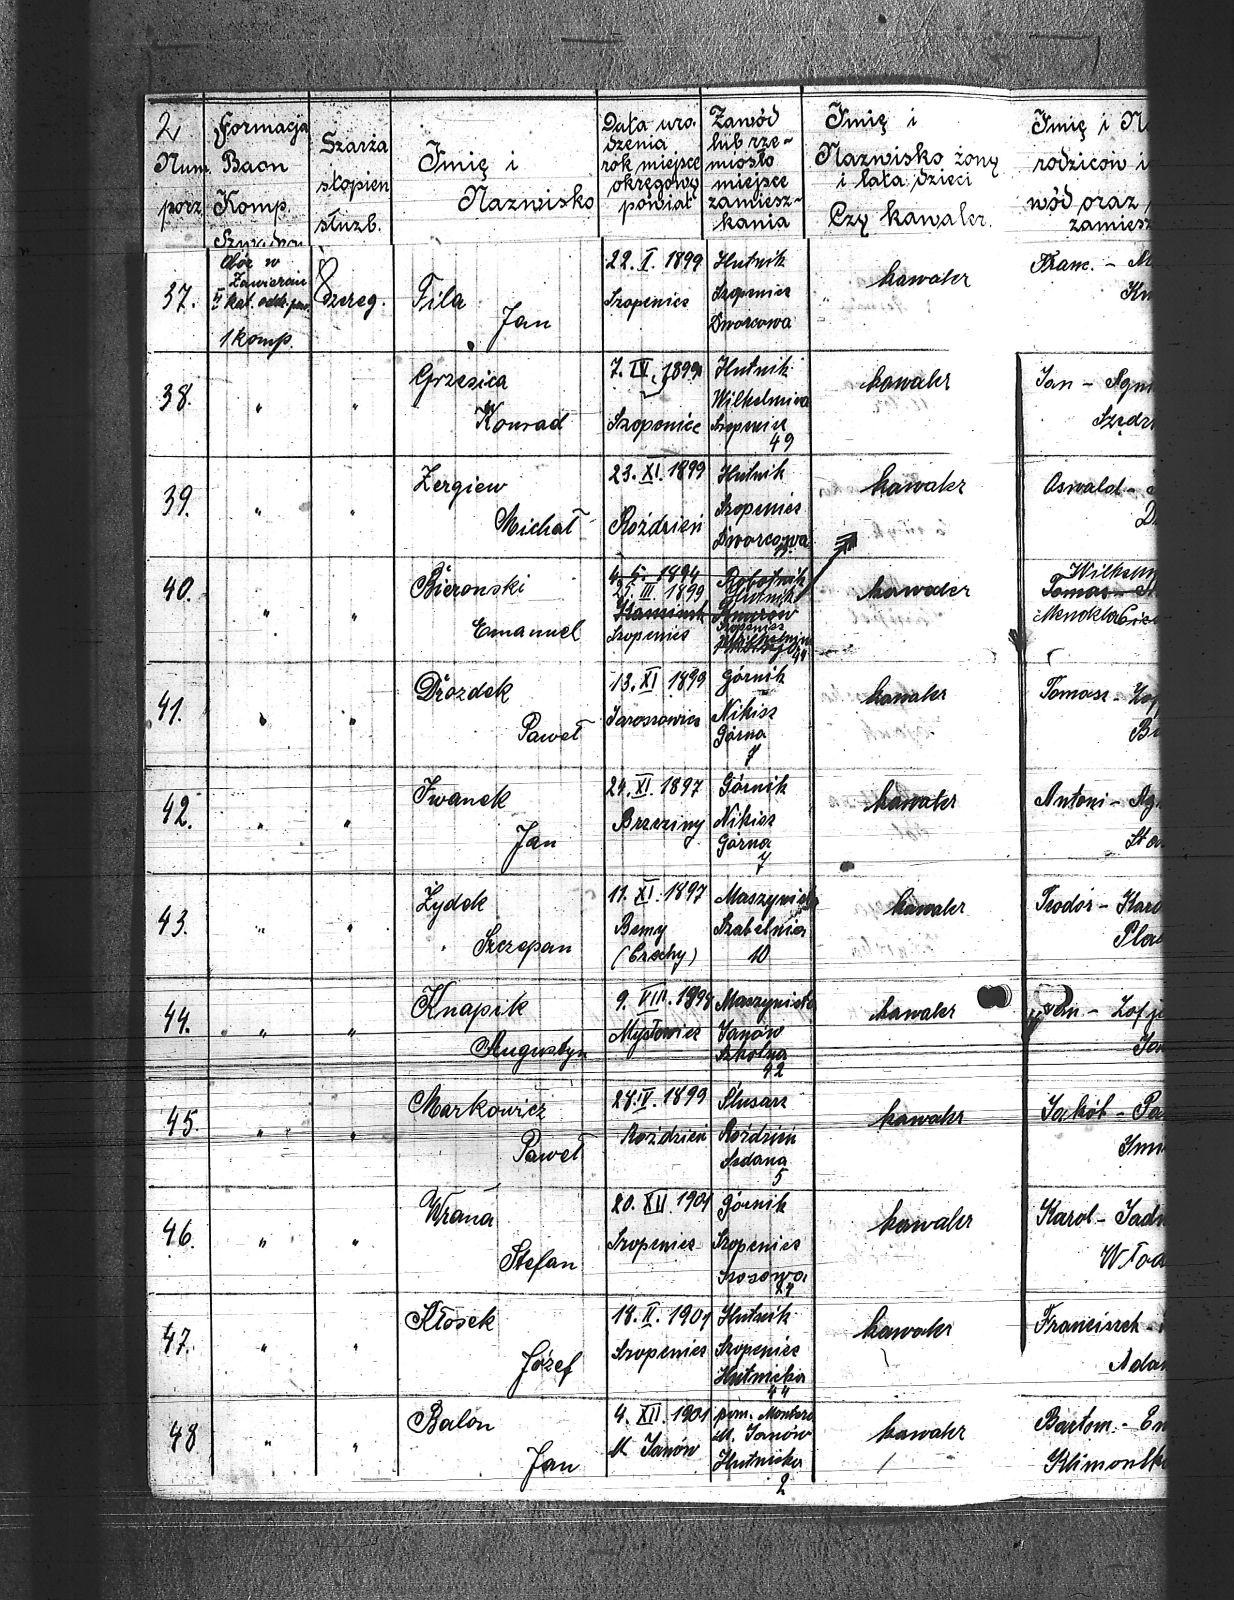 2,
Num.
porz.
Formacja
Baon
Komp.
Szarża
stopień
służb.
Imię i
Nazwisko
Data uro-
dzenia
rok miejsce
okręgowy
powiat
Zawód
lub rze-
miosło
miejsce
zamiesz-
kania
Imię i
Nazwisko żony
i lata dzieci
Czy kawaler.
Imię i N
rodziców i
wód oraz
zamiesz
37.
w
Zawierciu
1 komp.
szereg.
Fila
Jan
22. I. 1899
Szopenice
Hutnik
Szopenice
Dworcowa
kawaler
Franc. - M
38.
"
"
Grzesica
Konrad
7. IV. 1899
Szopenice
Hutnik
Wilhelmina
Szopenice
49
kawaler
Jan - Agn
39.
"
"
Zergiew
Michał
23. XI. 1899
Roździeń
Hutnik
Szopenice
Dworcowa
kawaler
Oswald -
40.
"
"
Bieronski
Emanuel
1894
25. III. 1899
Szopenice
Robotnik
Hutnik
Szopenice
kawaler
Wilhelm
Tomas -
41.
"
"
Drozdek
Paweł
13. XI 1899
Jarossowice
Górnik
Nikisz
Górna
7
kawaler
Tomasz - Zof
42.
"
"
Iwanek
Jan
24. XI. 1897
Brzeziny
Górnik
Nikisz
Górna
7
kawaler
Antoni - Ag
Sta
43.
"
"
Żydek
Szczepan
11. XI. 1897
Bemy
(Czechy)
Maszynista
Szabelnia
10
kawaler
Teodor - Karo
Pla
44.
"
"
Knapik
Augustyn
9. VIII. 1898
Mysłowice
Maszynista
Janów
Szkolna
42
kawaler
Jan - Zofj
45.
"
"
Markowicz
Paweł
28. IV. 1899
Roździeń
Ślusarz
Roździeń
5
kawaler
Jakób - Pa
46.
"
"
Wrana
Stefan
20. XII 1901
Szopenice
Górnik
Szopenice
Szosowa
kawaler
Karol - Jadw
Włod
47.
"
"
Kłosek
Józef
18. II. 1901
Szopenice
Hutnik
Szopenice
Hutnicka
44
kawaler
Franciszek
Adam
48
"
"
Balon
Jan
4. XII. 1901
M Janów
pom. Montera
M. Janów
Hutnicka
2
kawaler
Bartom. - Em